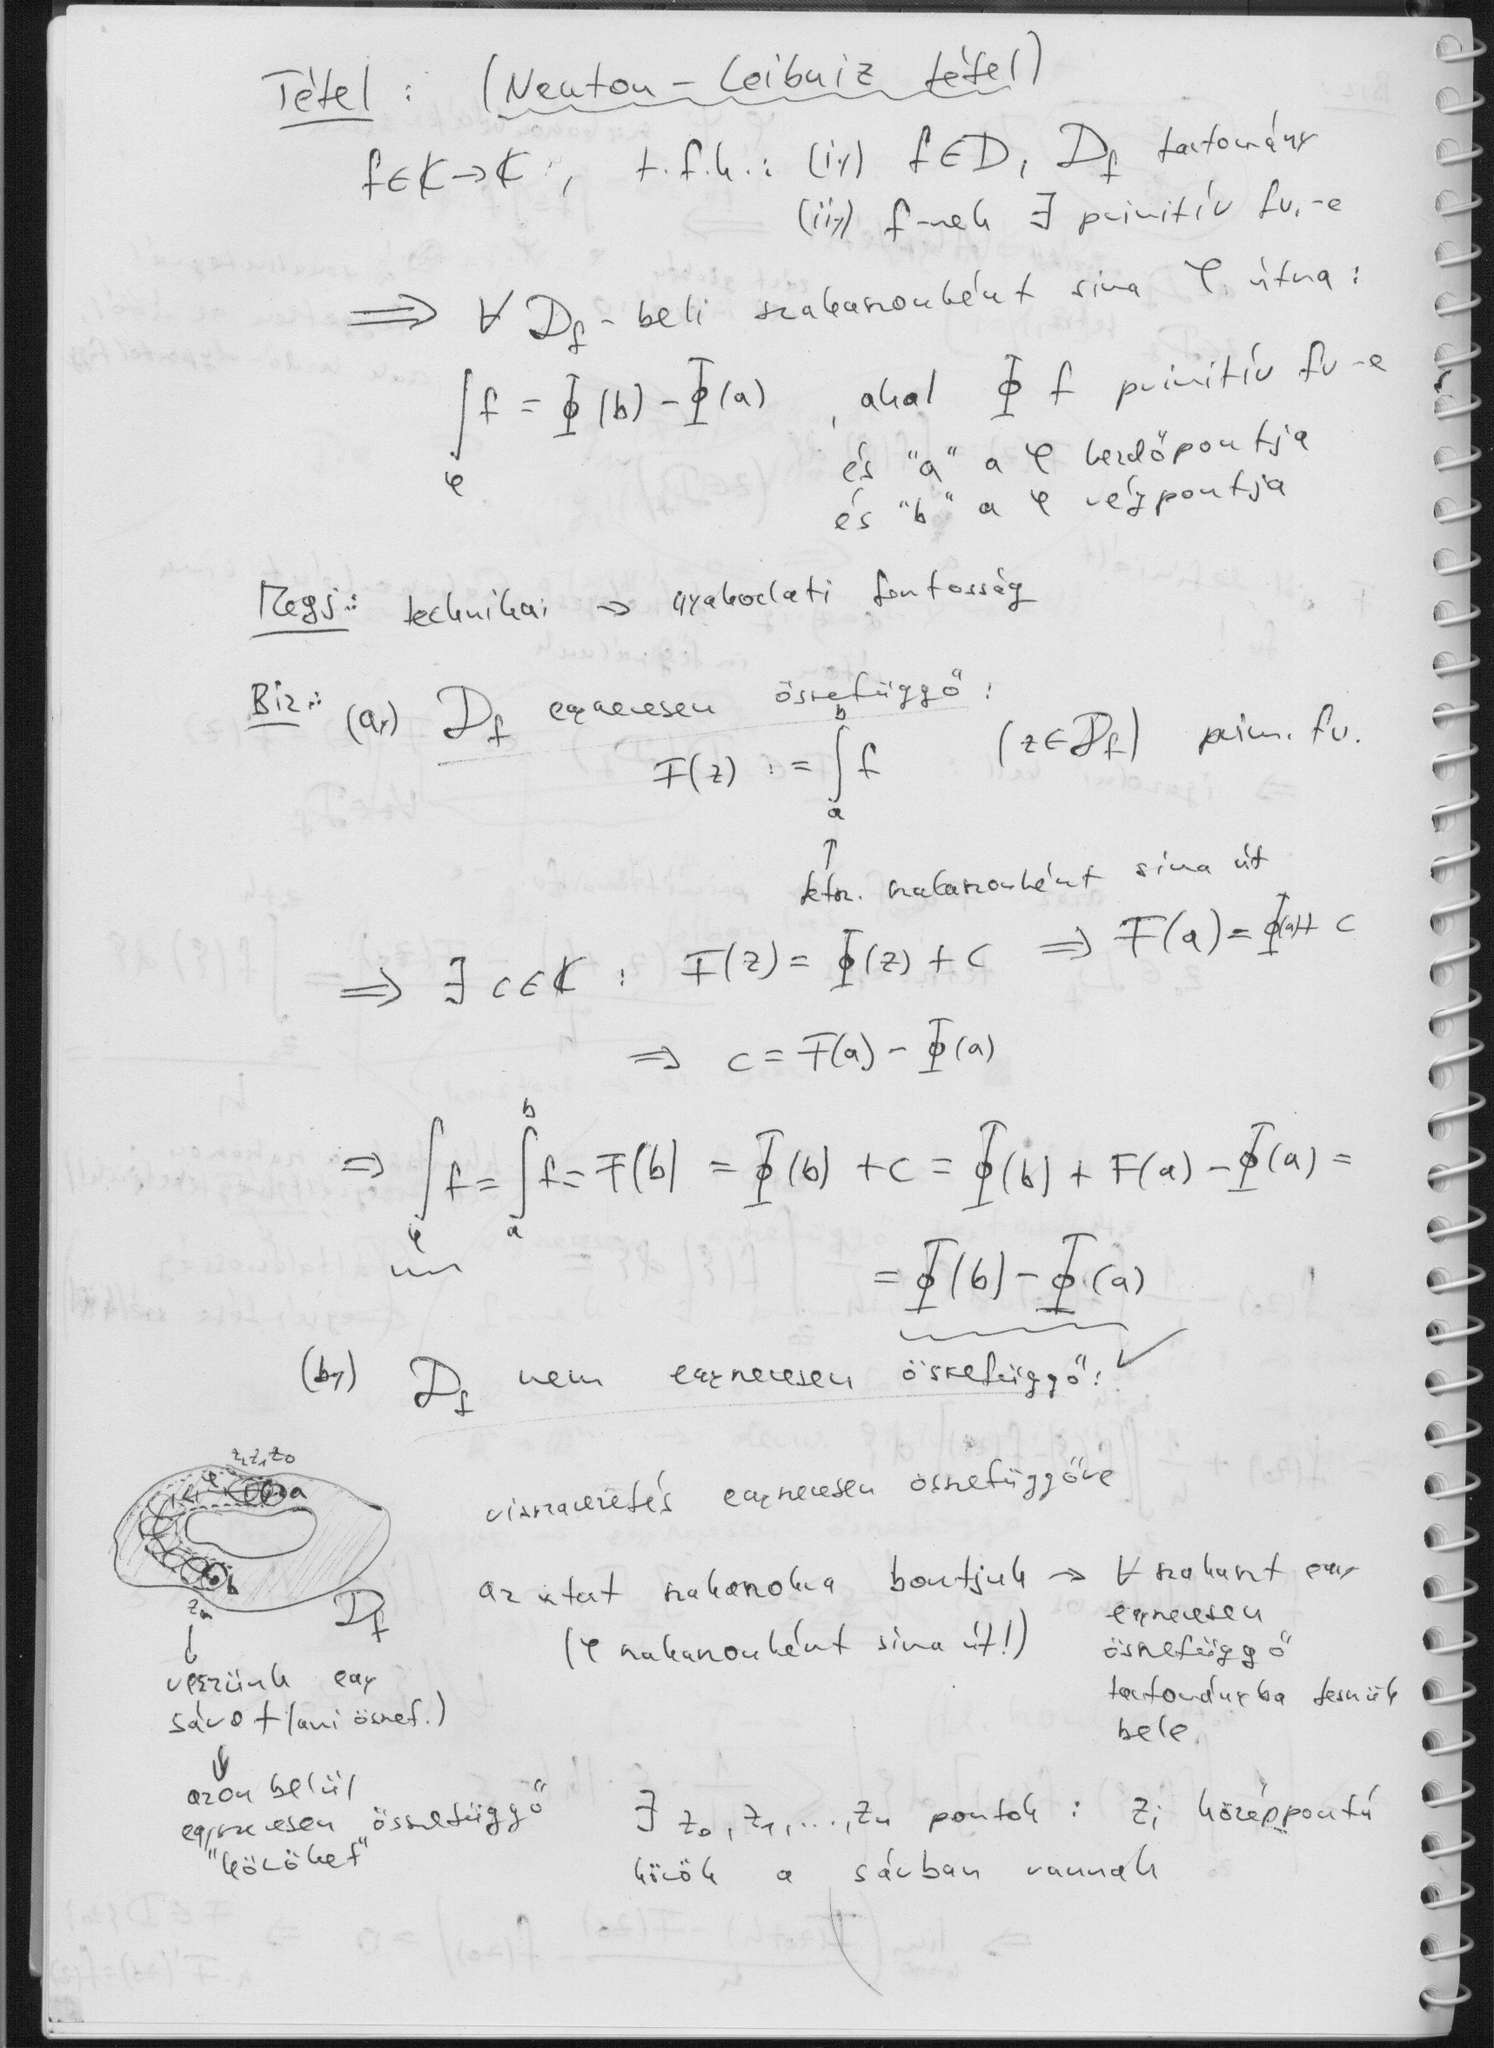 Tétel : (Newton - Leibniz tétel)
f ∈ ℂ → ℂ , t.f.h.: (i,) f ∈ D, D_f tartomány
(ii,) f-nek ∃ primitív fv.-e
⟹ ∀ D_f - beli szakaszonként sima φ útra :
∫_φ f = Φ(b) - Φ(a) , ahol Φ f primitív fv-e
és "a" a φ kezdőpontja
és "b" a φ végpontja
Megj.: technikai → gyakorlati fontosság
Biz.: (a,) D_f egyszeresen összefüggő :
F(z) := ∫_a^b f (z ∈ D_f) prim. fv.
↑
tetsz. szakaszonként sima út
⟹ ∃ c ∈ ℂ : F(z) = Φ(z) + c ⟹ F(a) = Φ(a) + c
⟹ c = F(a) - Φ(a)
⟹ ∫_φ f = ∫_a^b f = F(b) = Φ(b) + c = Φ(b) + F(a) - Φ(a) =
= Φ(b) - Φ(a)
(b,) D_f nem egyszeresen összefüggő : ✓
z₂ z₁ z₀
φ a
b
zₙ
D_f
visszavezetés egyszeresen összefüggőre
az utat szakaszokra bontjuk → ∀ szakaszt egy
egyszeresen
összefüggő
tartományba teszünk
bele.
(φ szakaszonként sima út!)
↓
veszünk egy
sávot (ami össef.)
↓
azon belül
egyszeresen összefüggő
"köröket"
∃ z₀, z₁, ..., zₙ pontok : zᵢ középpontú
körök a sávban vannak